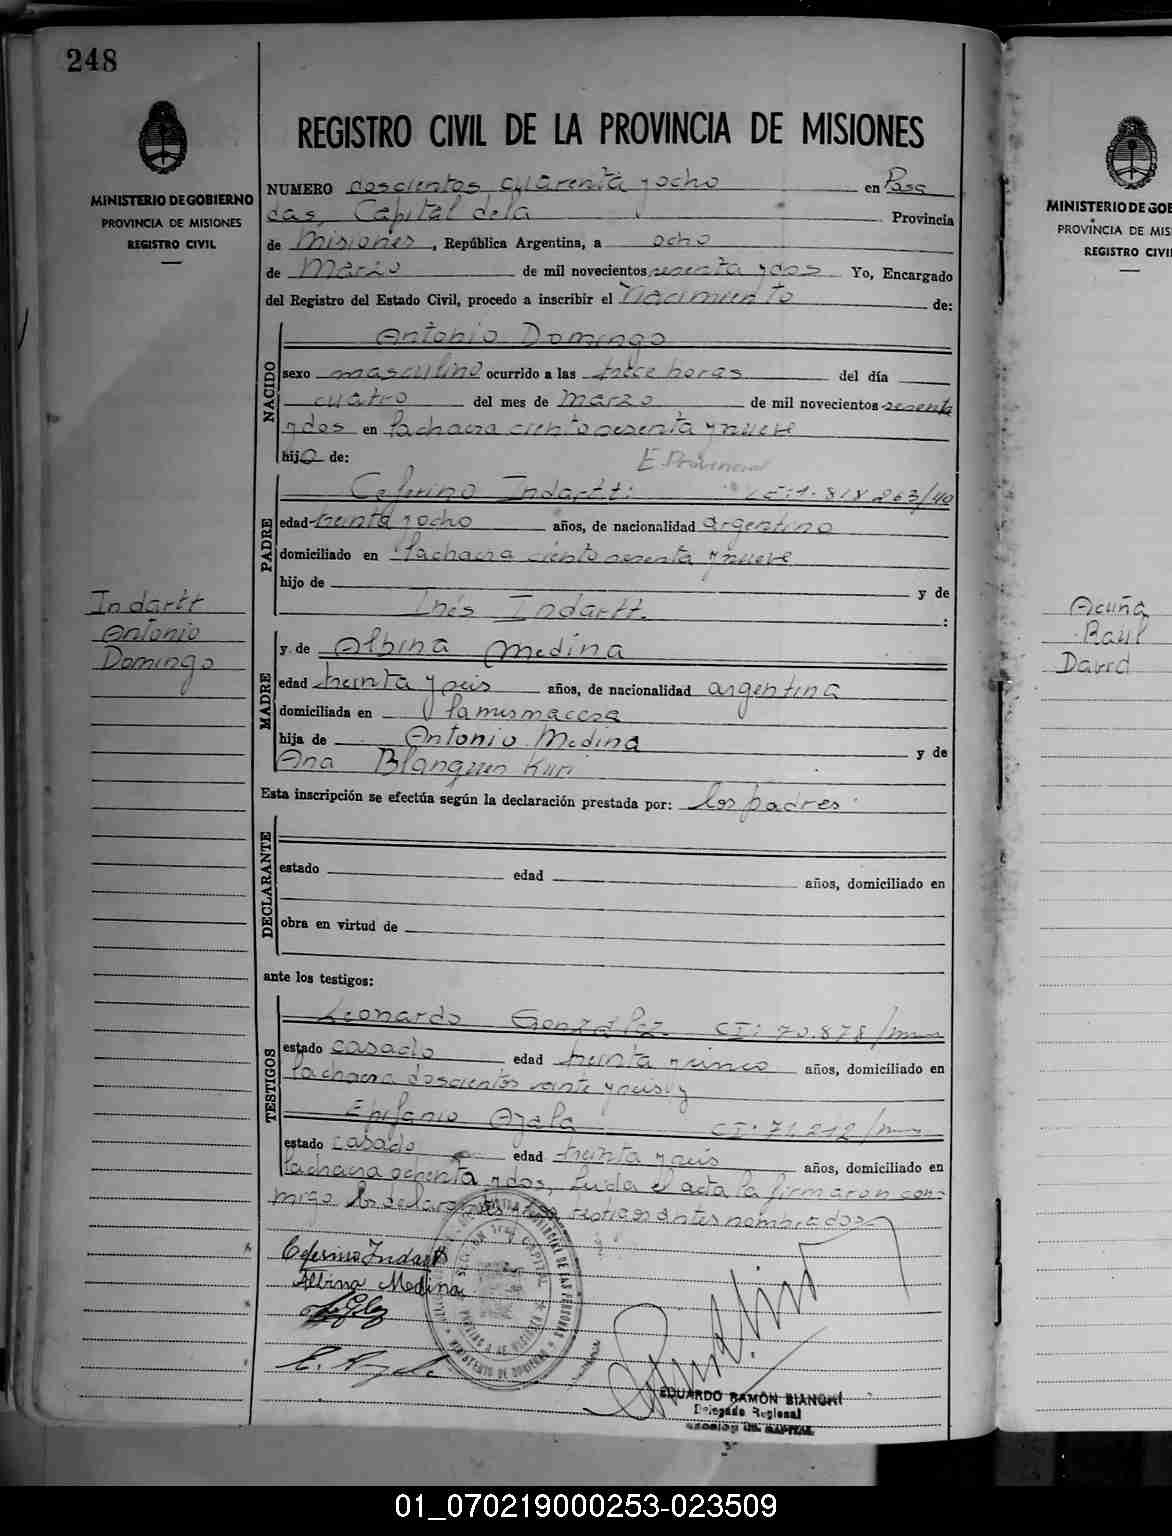 248
MINISTERIO DE GOBIERNO
PROVINCIA DE MISIONES
REGISTRO CIVIL
REGISTRO CIVIL DE LA PROVINCIA DE MISIONES
NUMERO doscientos cuarenta y ocho en Posa
das, Capital de la Provincia
de Misiones, República Argentina, a ocho
de Marzo de mil novecientos sesenta y dos Yo, Encargado
del Registro del Estado Civil, procedo a inscribir el Nacimiento de:
NACIDO
Antonio Domingo
sexo masculino ocurrido a las trece horas del día
cuatro del mes de Marzo de mil novecientos sesenta
y dos en la chacra ciento sesenta y nueve
hijo de:
E. Provincial
PADRE
Ceferino Indartt: 1.818.263/40
edad treinta y ocho años, de nacionalidad argentino
domiciliado en la chacra ciento sesenta y nueve
hijo de y de
Inés Indartt. :
MADRE
y de Albina Medina
edad treinta y seis años, de nacionalidad argentina
domiciliada en la misma casa
hija de Antonio Medina y de
Ana
Esta inscripción se efectúa según la declaración prestada por: los padres
DECLARANTE
estado edad años, domiciliado en
obra en virtud de
ante los testigos:
TESTIGOS
Leonardo Gonzalez CI: 70.878/mnes
estado casado edad treinta y cinco años, domiciliado en
la chacra doscientos veinte y seis y
Epifanio Ayala CI: 71.212/mnes
estado casado edad treinta y seis años, domiciliado en
la chacra ochenta y dos, Leida el acta la firmaron con-
migo los declarantes y los testigos antes nombrados
Ceferino Indartt
Albina Medina
E. Ayala
EDUARDO RAMÓN BIANCHI
Delegado Regional
SECCION 1ra. CAPITAL
Indartt
Antonio
Domingo
MINISTERIO DE GOB
PROVINCIA DE MIS
REGISTRO CIVI
Acuña
Raúl
David
01_070219000253-023509